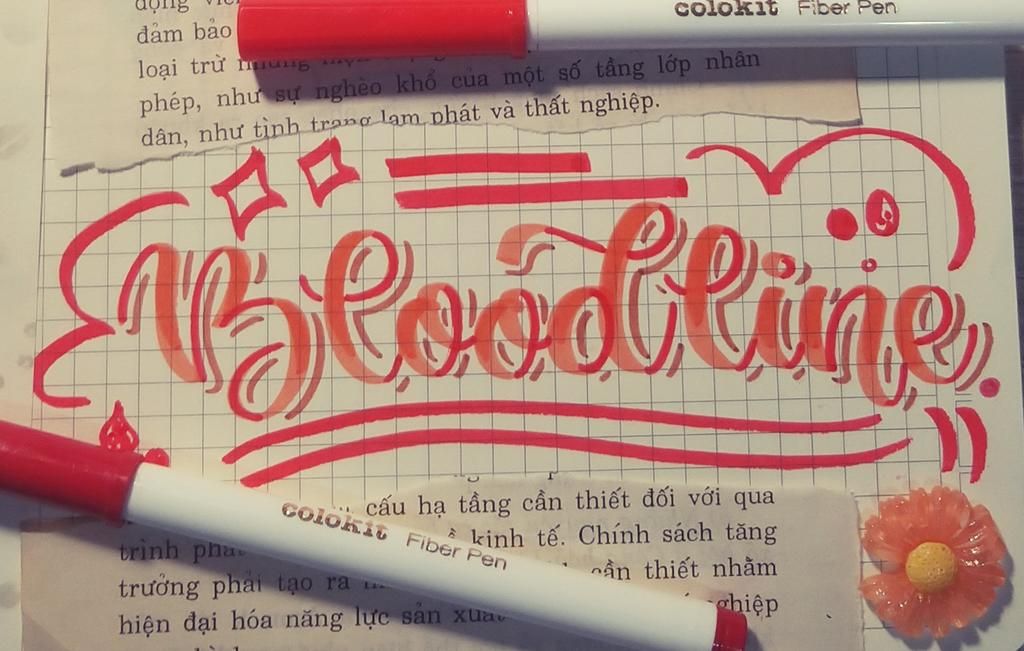 colokit Fiber Pen
động
đảm bảo
loại trừ những
phép, như sự nghèo khổ của một số tầng lớp nhân
dân, như tình trạng lạm phát và thất nghiệp.
Bloodline
cấu hạ tầng cần thiết đối với qua
colokit Fiber Pen
kinh tế. Chính sách tăng
trình phát
trưởng phải tạo ra cần thiết nhằm
hiện đại hóa năng lực sản xuất nghiệp